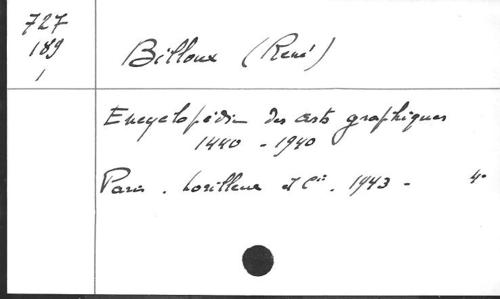 727
189
1
Billoux (René)
Encyclopédie des arts graphiques
1440 - 1940
Paris. Lorilleux et Cie. 1943 - 4°